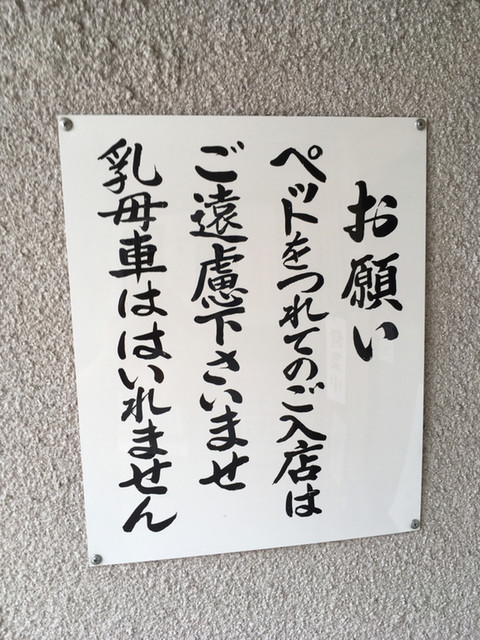 お願い
ペットをつれてのご入店は
ご遠慮下さいませ
乳母車ははいれません